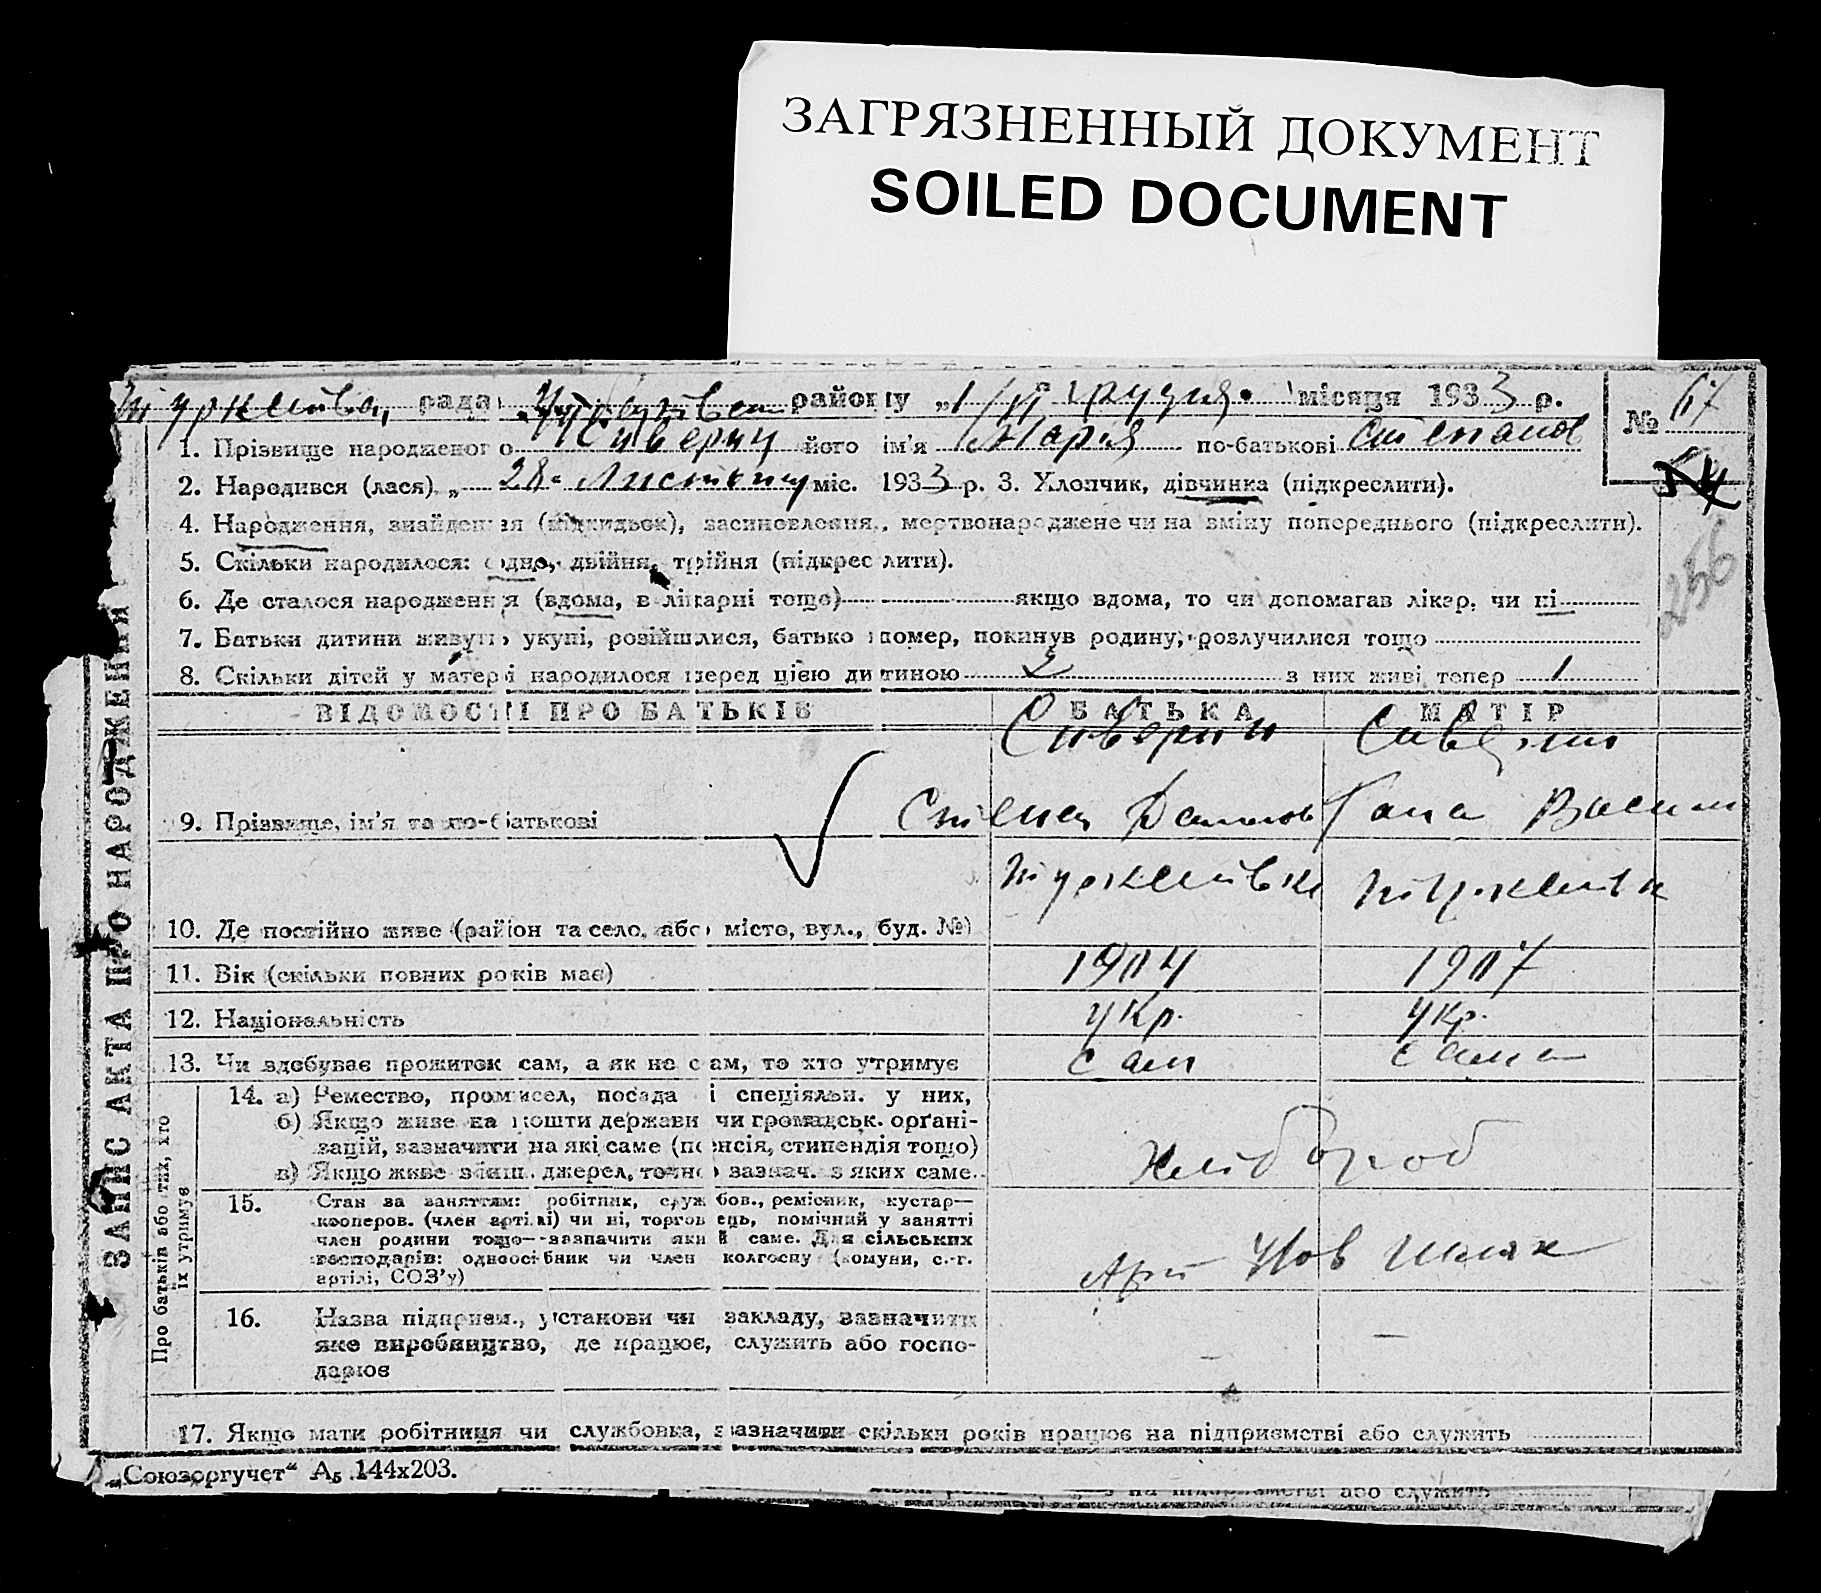 ЗАГРЯЗНЕННЫЙ ДОКУМЕНТ
SOILED DOCUMENT
рада району „1/VI грудня" місяця 1933 р. № 67
1. Прізвище народженого Сиверин його ім'я Марія по-батькові Степанов
54
2. Народився (лася) „28" Листопад міс. 1933 р. 3. Хлопчик, дівчинка (підкреслити).
4. Народження, знайдення (підкидьок), засиновлення, мертвонароджене чи на зміну попереднього (підкреслити).
256
5. Скільки народилося: одно, двійня, трійня (підкреслити).
6. Де сталося народження (вдома, в лікарні тощо) якщо вдома, то чи допомагав лікар, чи ні
7. Батьки дитини живуть укупі, розійшлися, батько помер, покинув родину, розлучилися тощо
8. Скільки дітей у матері народилося перед цією дитиною 2 з них живі тепер 1
ВІДОМОСТІ ПРО БАТЬКІВ БАТЬКА МАТІР
Сиверин Сиверин
9. Прізвище, ім'я та по-батькові Степан Гана Васил
10. Де постійно живе (район та село, або місто, вул., буд. №)
11. Вік (скільки повних років має) 1904 1907
12. Національність укр. укр.
13. Чи здобуває прожиток сам, а як не сам, то хто утримує сам сама
14. а) Ремество, промисел, посада і спеціяльн. у них,
б) Якщо живе на кошти держави чи громадськ. орґані-
зацій, зазначити на які саме (пенсія, стипендія тощо)
в) Якщо живе з інш. джерел, точно зазнач. з яких саме.
Хлібороб
15. Стан за заняттям: робітник, службов., ремісник, кустар—
кооперов. (член артілі) чи ні, торговець, помічний у занятті
член родини тощо—зазначити який саме. Для сільських
господарів: одноосібник чи член колгоспу (комуни, с.-г.
артілі, СОЗ'у)
Арт Нов Шлях
16. Назва підприєм., установи чи закладу, зазначити
яке виробництво, де працює, служить або госпо-
дарює
— —
17. Якщо мати робітниця чи службовка, зазначити скільки років працює на підприємстві або служить
„Союзоргучет" А₅ 144х203.
на підприємстві або служить
ЗАПИС АКТА ПРО НАРОДЖЕННЯ
Про батьків або тих, хто
їх утримує